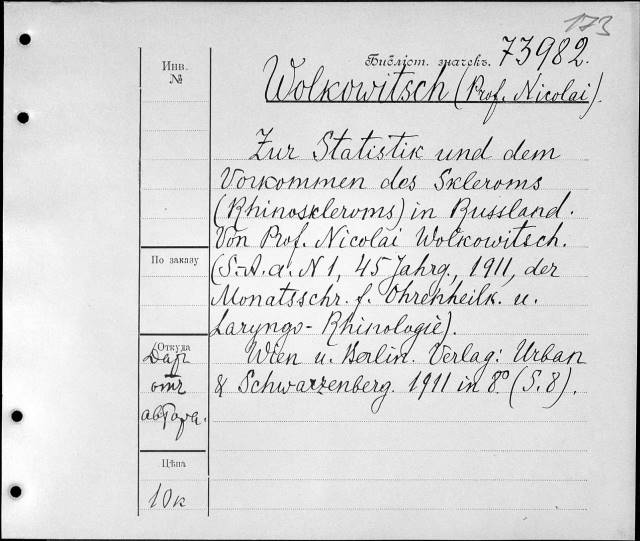 173
Инв.
№
Библіот. значекъ. 73982.
Wolkowitsch (Prof. Nicolai).
Zur Statistik und dem
Vorkommen des Skleroms
(Rhinoskleroms) in Russland.
Von Prof. Nicolai Wolkowitsch.
По заказу
(S.-A. a. N 1, 45 Jahrg., 1911, der
Monatsschr. f. Ohrenheilk. u.
Laryngo-Rhinologie).
Откуда
Дар
отъ
автора.
Wien u. Berlin. Verlag: Urban
& Schwarzenberg. 1911 in 8º (S. 8).
Цѣна
10 к